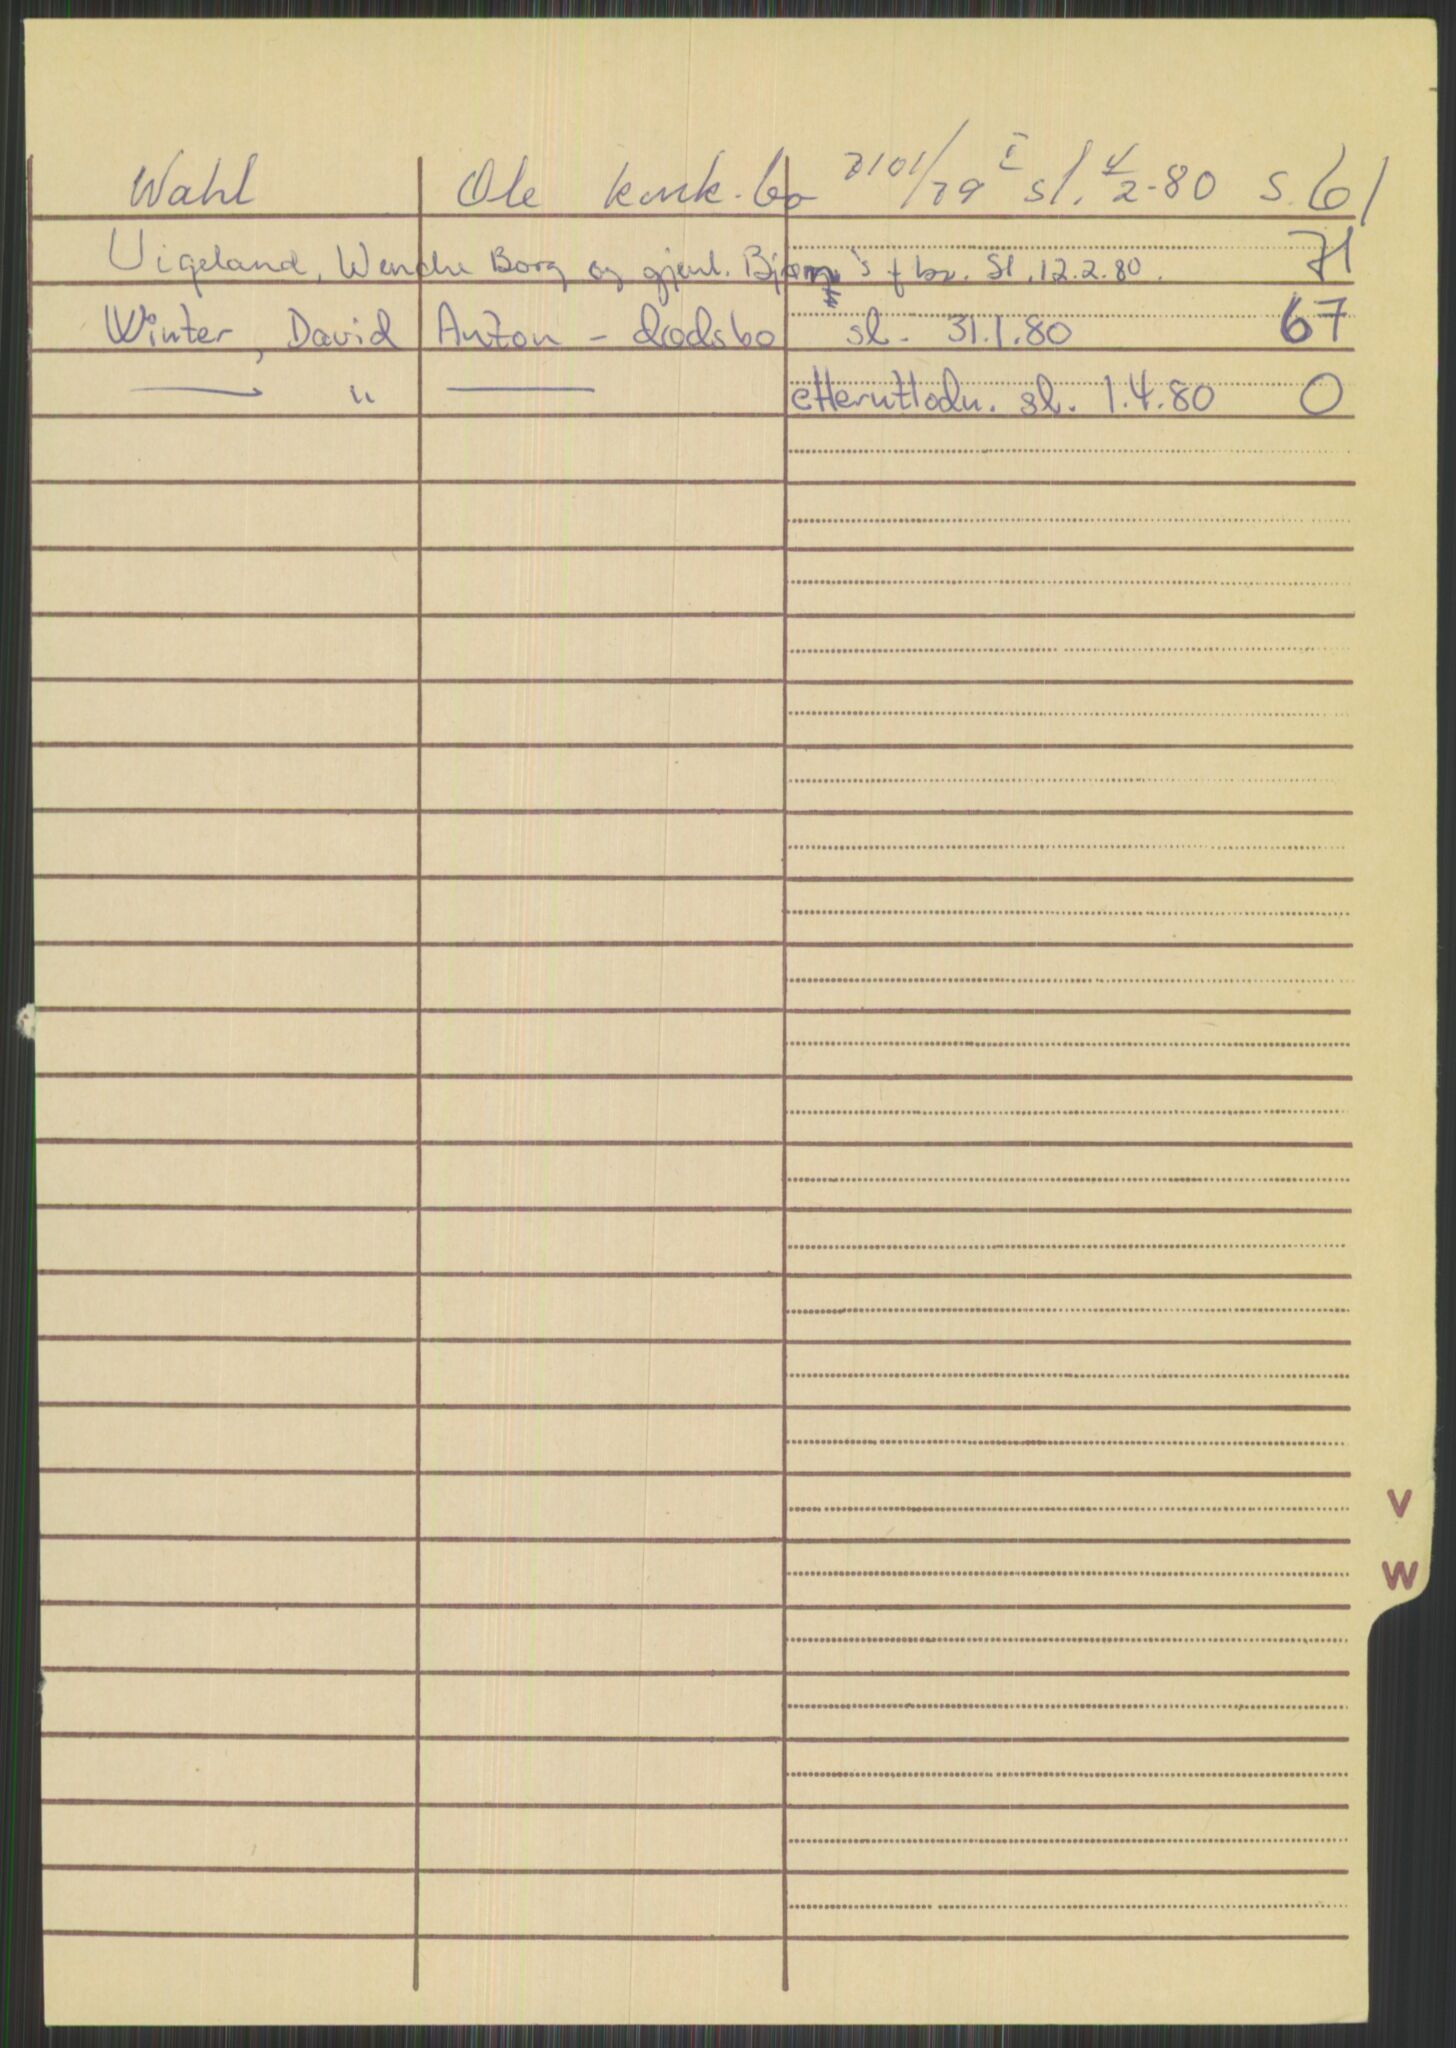 Wahl Ole konk.bo 2101/79 I sl. 4/2-80 S. 61
Vigeland, Wenche Borg og gjenl. Bjørn's f bo. Sl. 12.2.80. 71
Winter, David Anton - dødsbo sl. 31.1.80 67
— " — etterutlodn. sl. 1.4.80 0
V
W